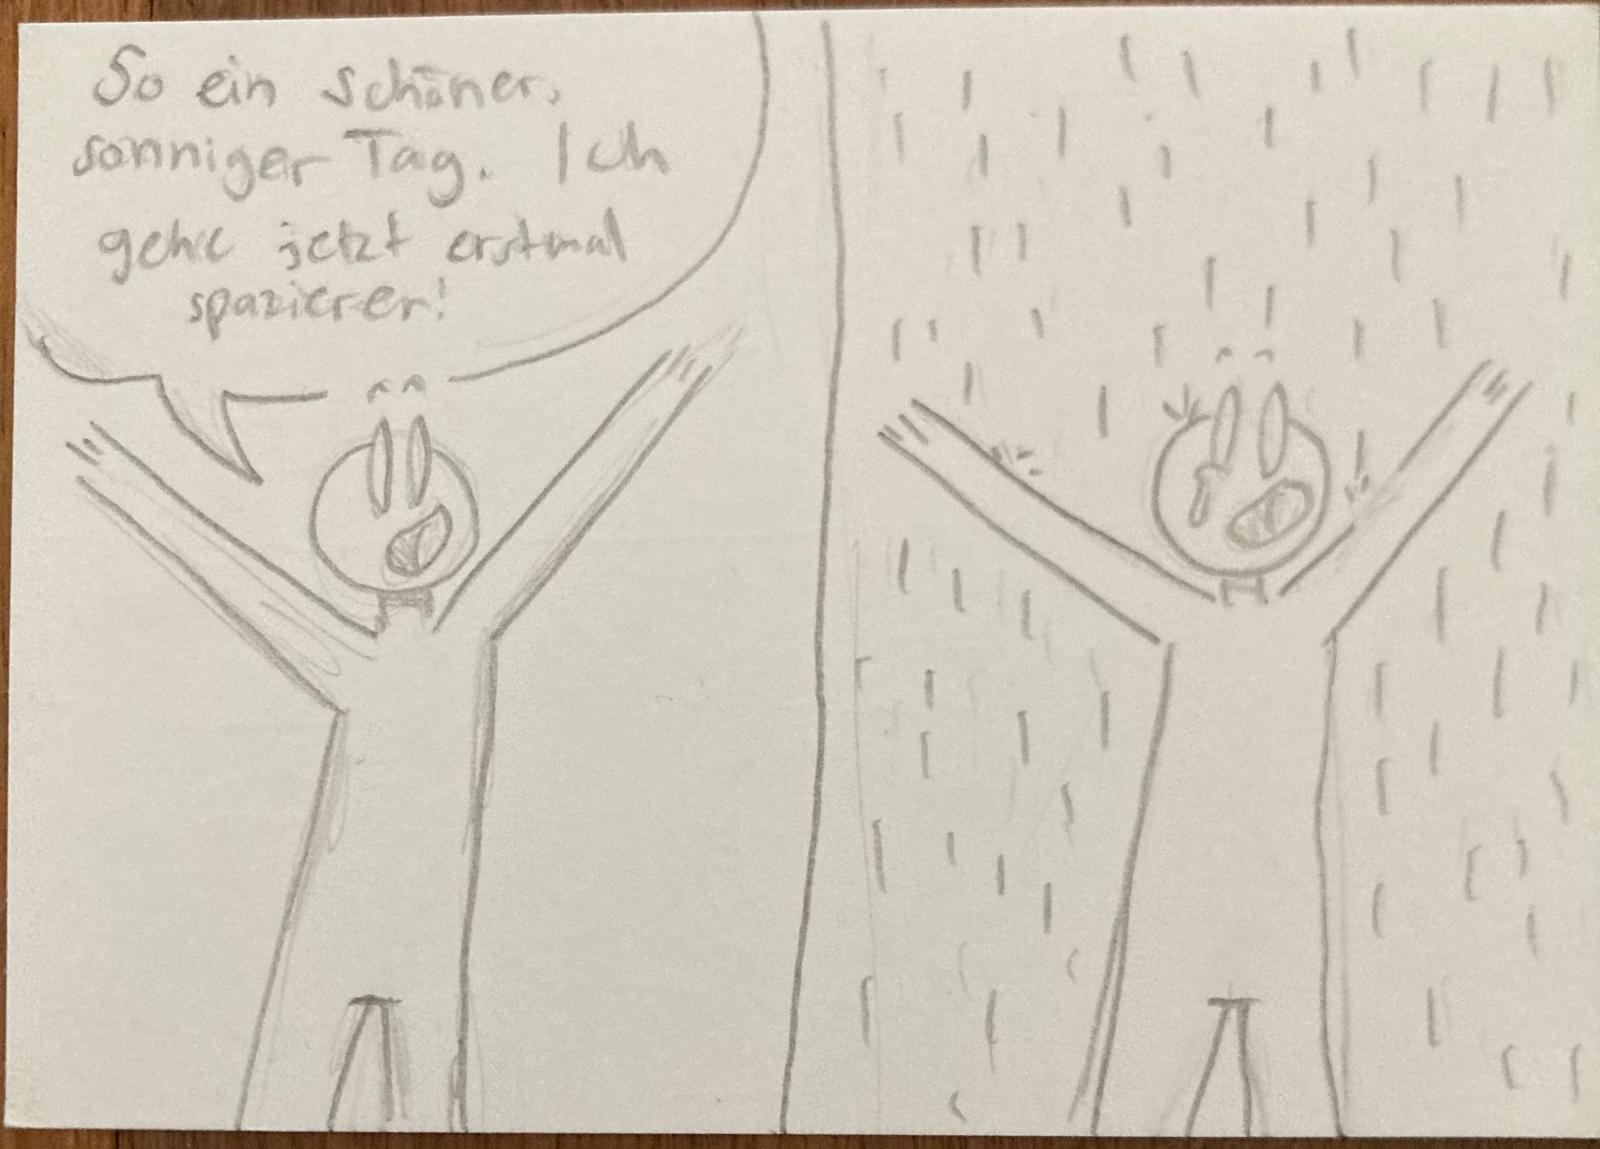 So ein schöner,
sonniger Tag. Ich
gehe jetzt erstmal
spazieren!